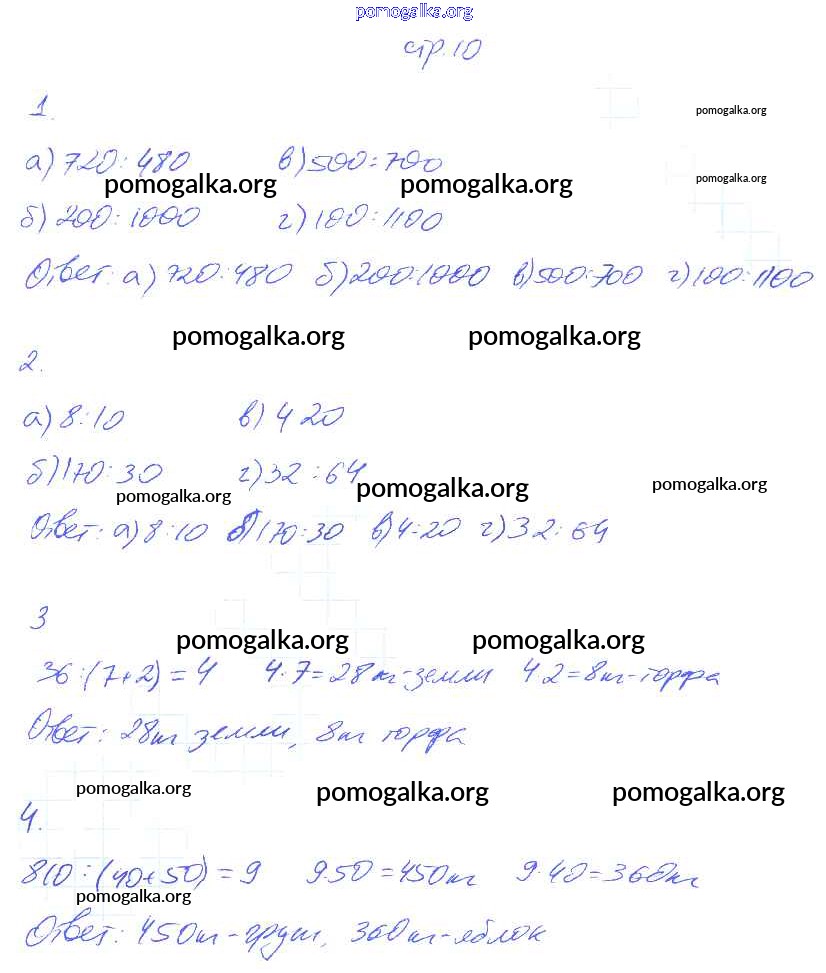 pomogalka.org
стр. 10
1.
pomogalka.org
а) 720 : 480 в) 500 : 700
pomogalka.org
pomogalka.org pomogalka.org
б) 200 : 1000 г) 100 : 1100
Ответ: а) 720 : 480 б) 200 : 1000 в) 500 : 700 г) 100 : 1100
pomogalka.org pomogalka.org
2.
а) 8 : 10 в) 4 20
б) 170 : 30 г) 32 : 64
pomogalka.org pomogalka.org pomogalka.org
Ответ: а) 8 : 10 б) 170 : 30 в) 4 : 20 г) 32 : 64
3
pomogalka.org pomogalka.org
36 : (7+2) = 4 4 · 7 = 28 кг - земли 4 · 2 = 8 кг - торфа
Ответ: 28 кг земли, 8 кг торфа
pomogalka.org pomogalka.org pomogalka.org
4.
810 : (40+50) = 9 9 · 50 = 450 кг 9 · 40 = 360 кг
pomogalka.org
Ответ: 450 кг - груш, 360 кг - яблок